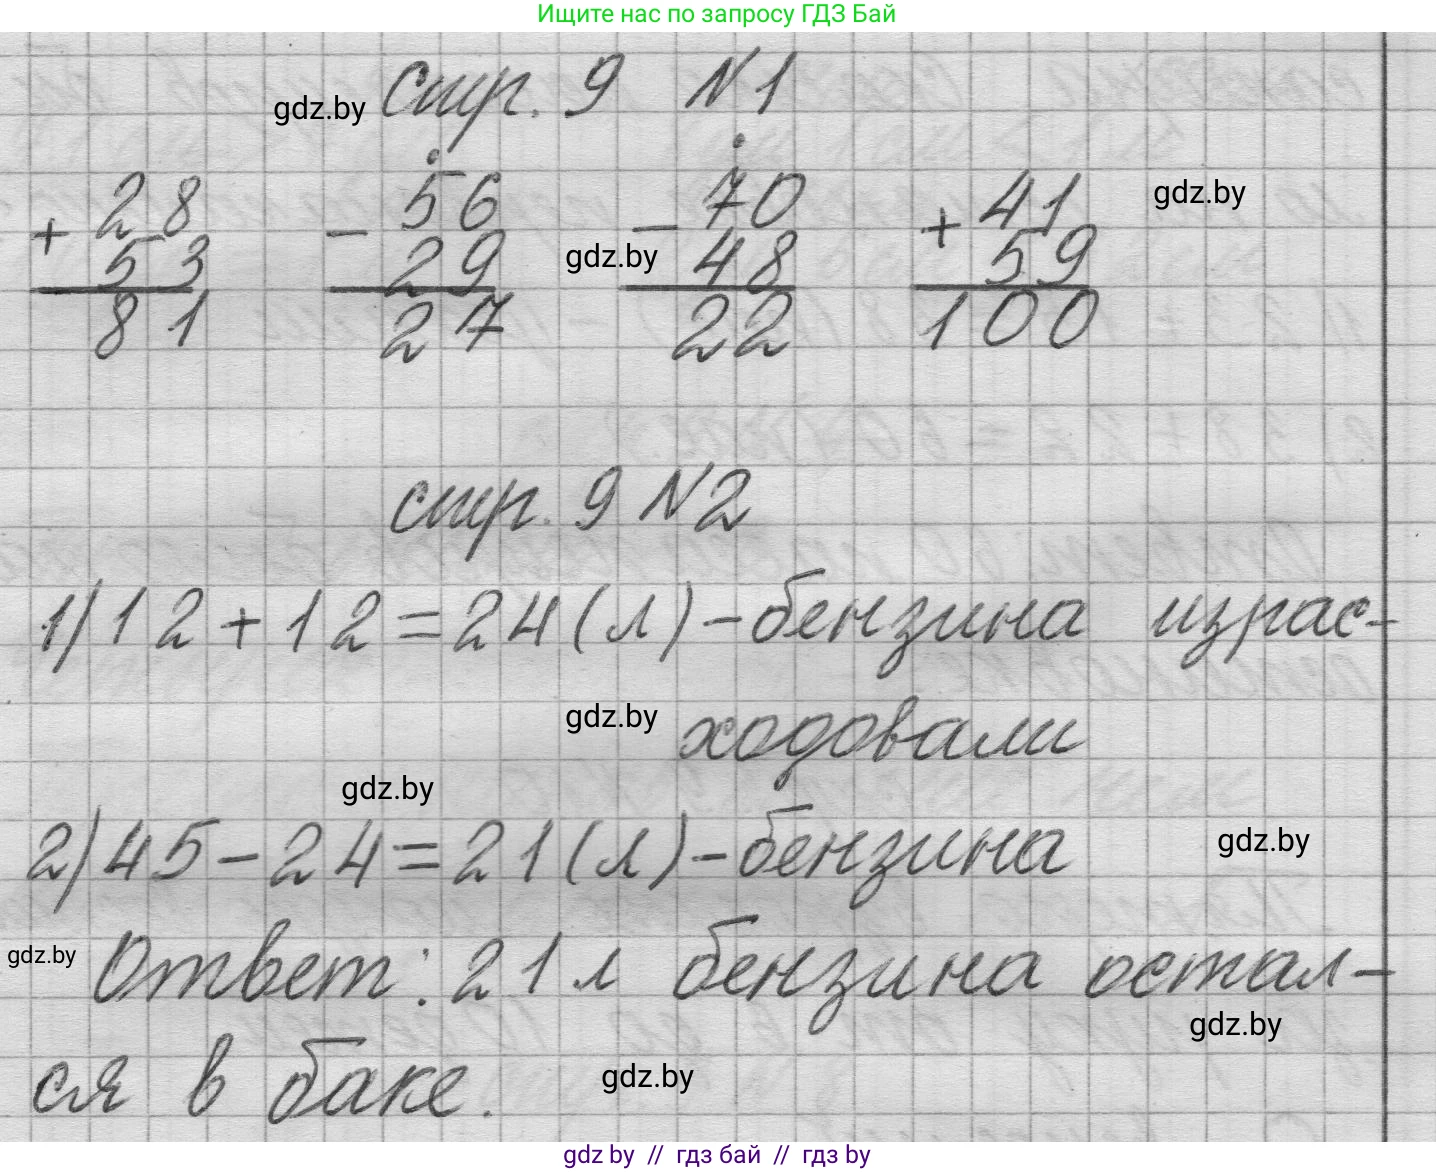 Ищите нас по запросу ГДЗ Бай
gdz.by стр. 9 №1
+ 28 - 56 - 70 + 41 gdz.by
53 29 gdz.by 48 59
81 27 22 100
стр. 9 №2
1) 12 + 12 = 24 (л) - бензина израс-
gdz.by ходовали
gdz.by
2) 45 - 24 = 21 (л) - бензина gdz.by
gdz.by Ответ: 21 л бензина остал-
gdz.by
ся в баке. gdz.by
gdz by // гдз бай // гдз by